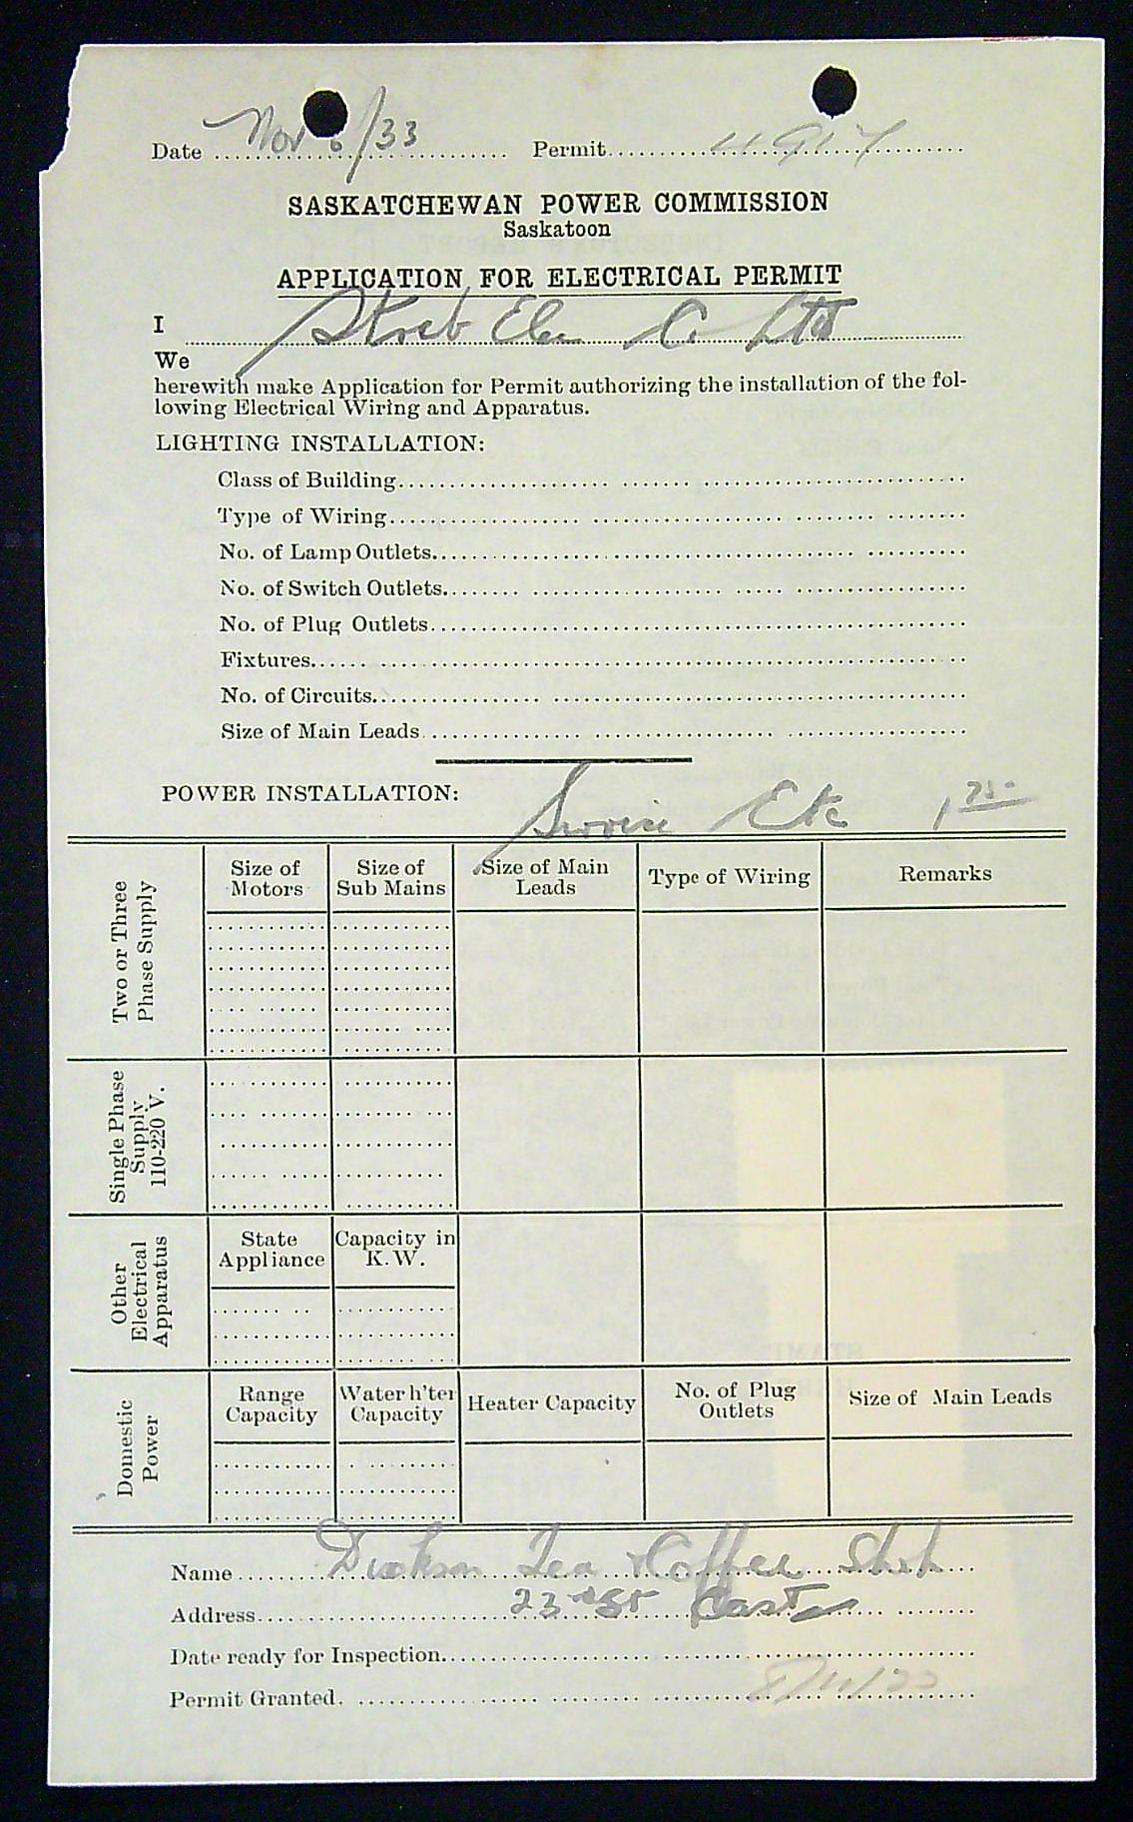 Date Nov 6/33 Permit 4917
SASKATCHEWAN POWER COMMISSION
Saskatoon
APPLICATION FOR ELECTRICAL PERMIT
I
Streb Elec Co Ltd
We
herewith make Application for Permit authorizing the installation of the fol-
lowing Electrical Wiring and Apparatus.
LIGHTING INSTALLATION:
Class of Building
Type of Wiring
No. of Lamp Outlets
No. of Switch Outlets
No. of Plug Outlets
Fixtures
No. of Circuits
Size of Main Leads
POWER INSTALLATION: Service Etc 1 75
Two or Three
Phase Supply
Size of
Motors
Size of
Sub Mains
Size of Main
Leads
Type of Wiring
Remarks
Single Phase
Supply
110-220 V.
Other
Electrical
Apparatus
State
Appliance
Capacity in
K.W.
Domestic
Power
Range
Capacity
Water h'ter
Capacity
Heater Capacity
No. of Plug
Outlets
Size of Main Leads
Name Tea & Coffee Shop
Address 23rd St East
Date ready for Inspection
Permit Granted.